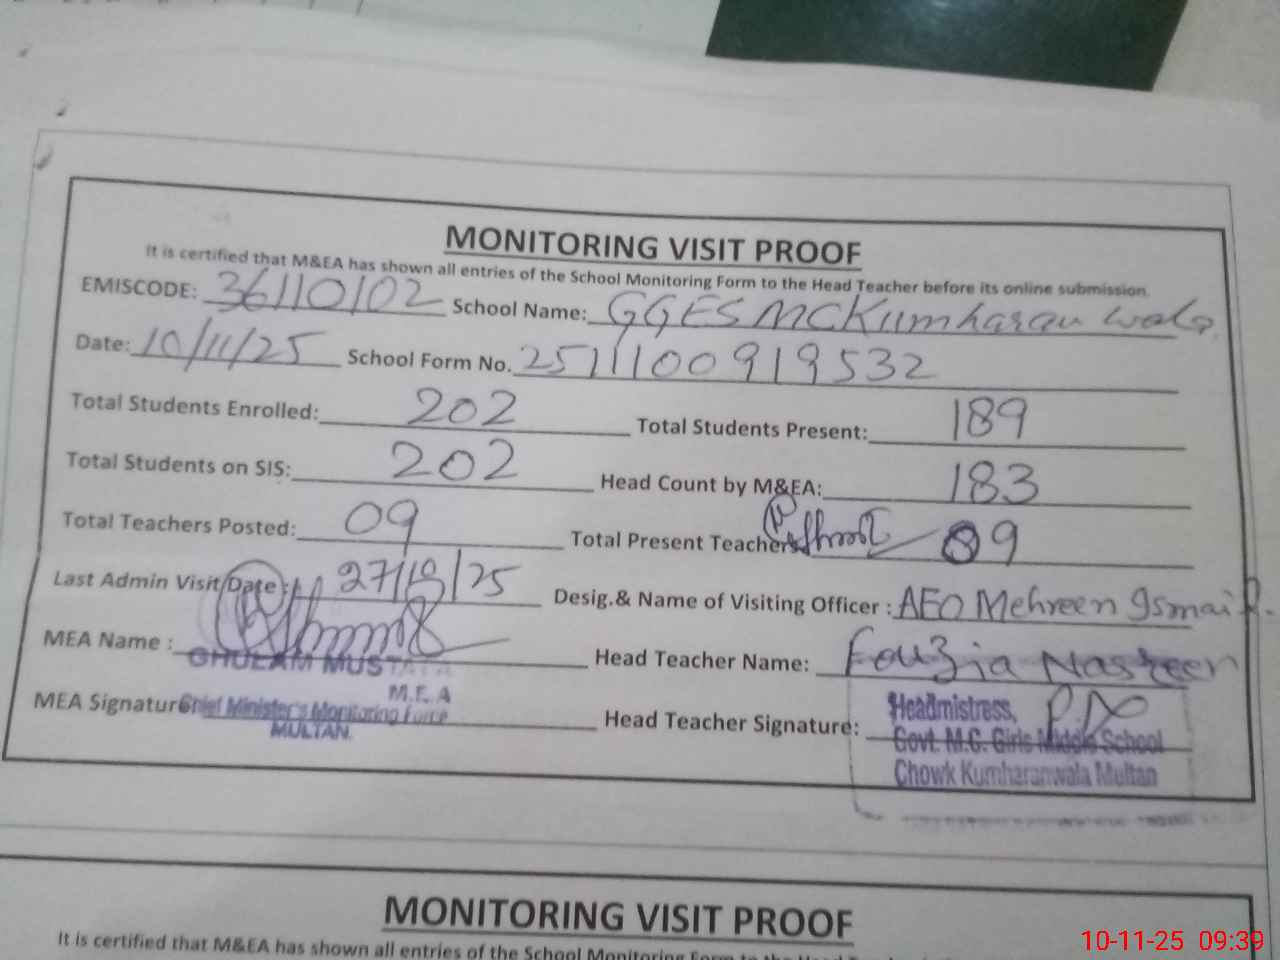 MONITORING VISIT PROOF
It is certified that M&EA has shown all entries of the School Monitoring Form to the Head Teacher before its online submission.
EMISCODE: 36110102 School Name: GGES MC Kumharan wala
Date: 10/11/25 School Form No. 2511100919532
Total Students Enrolled: 202 Total Students Present: 189
Total Students on SIS: 202 Head Count by M&EA: 183
Total Teachers Posted: 09 Total Present Teachers 09
Last Admin Visit Date: 27/10/25 Desig.& Name of Visiting Officer : AEO Mehreen Ismail.
MEA Name : Head Teacher Name: Fouzia Nasreen
GHULAM MUSTAFA
M.E.A
MEA Signature Chief Minister's Monitoring Force Head Teacher Signature: Headmistress,
MULTAN. Govt. M.C. Girls Middle School
Chowk Kumharanwala Multan
MONITORING VISIT PROOF
It is certified that M&EA has shown all entries of the School Monitoring Form to the Head
10-11-25 09:39